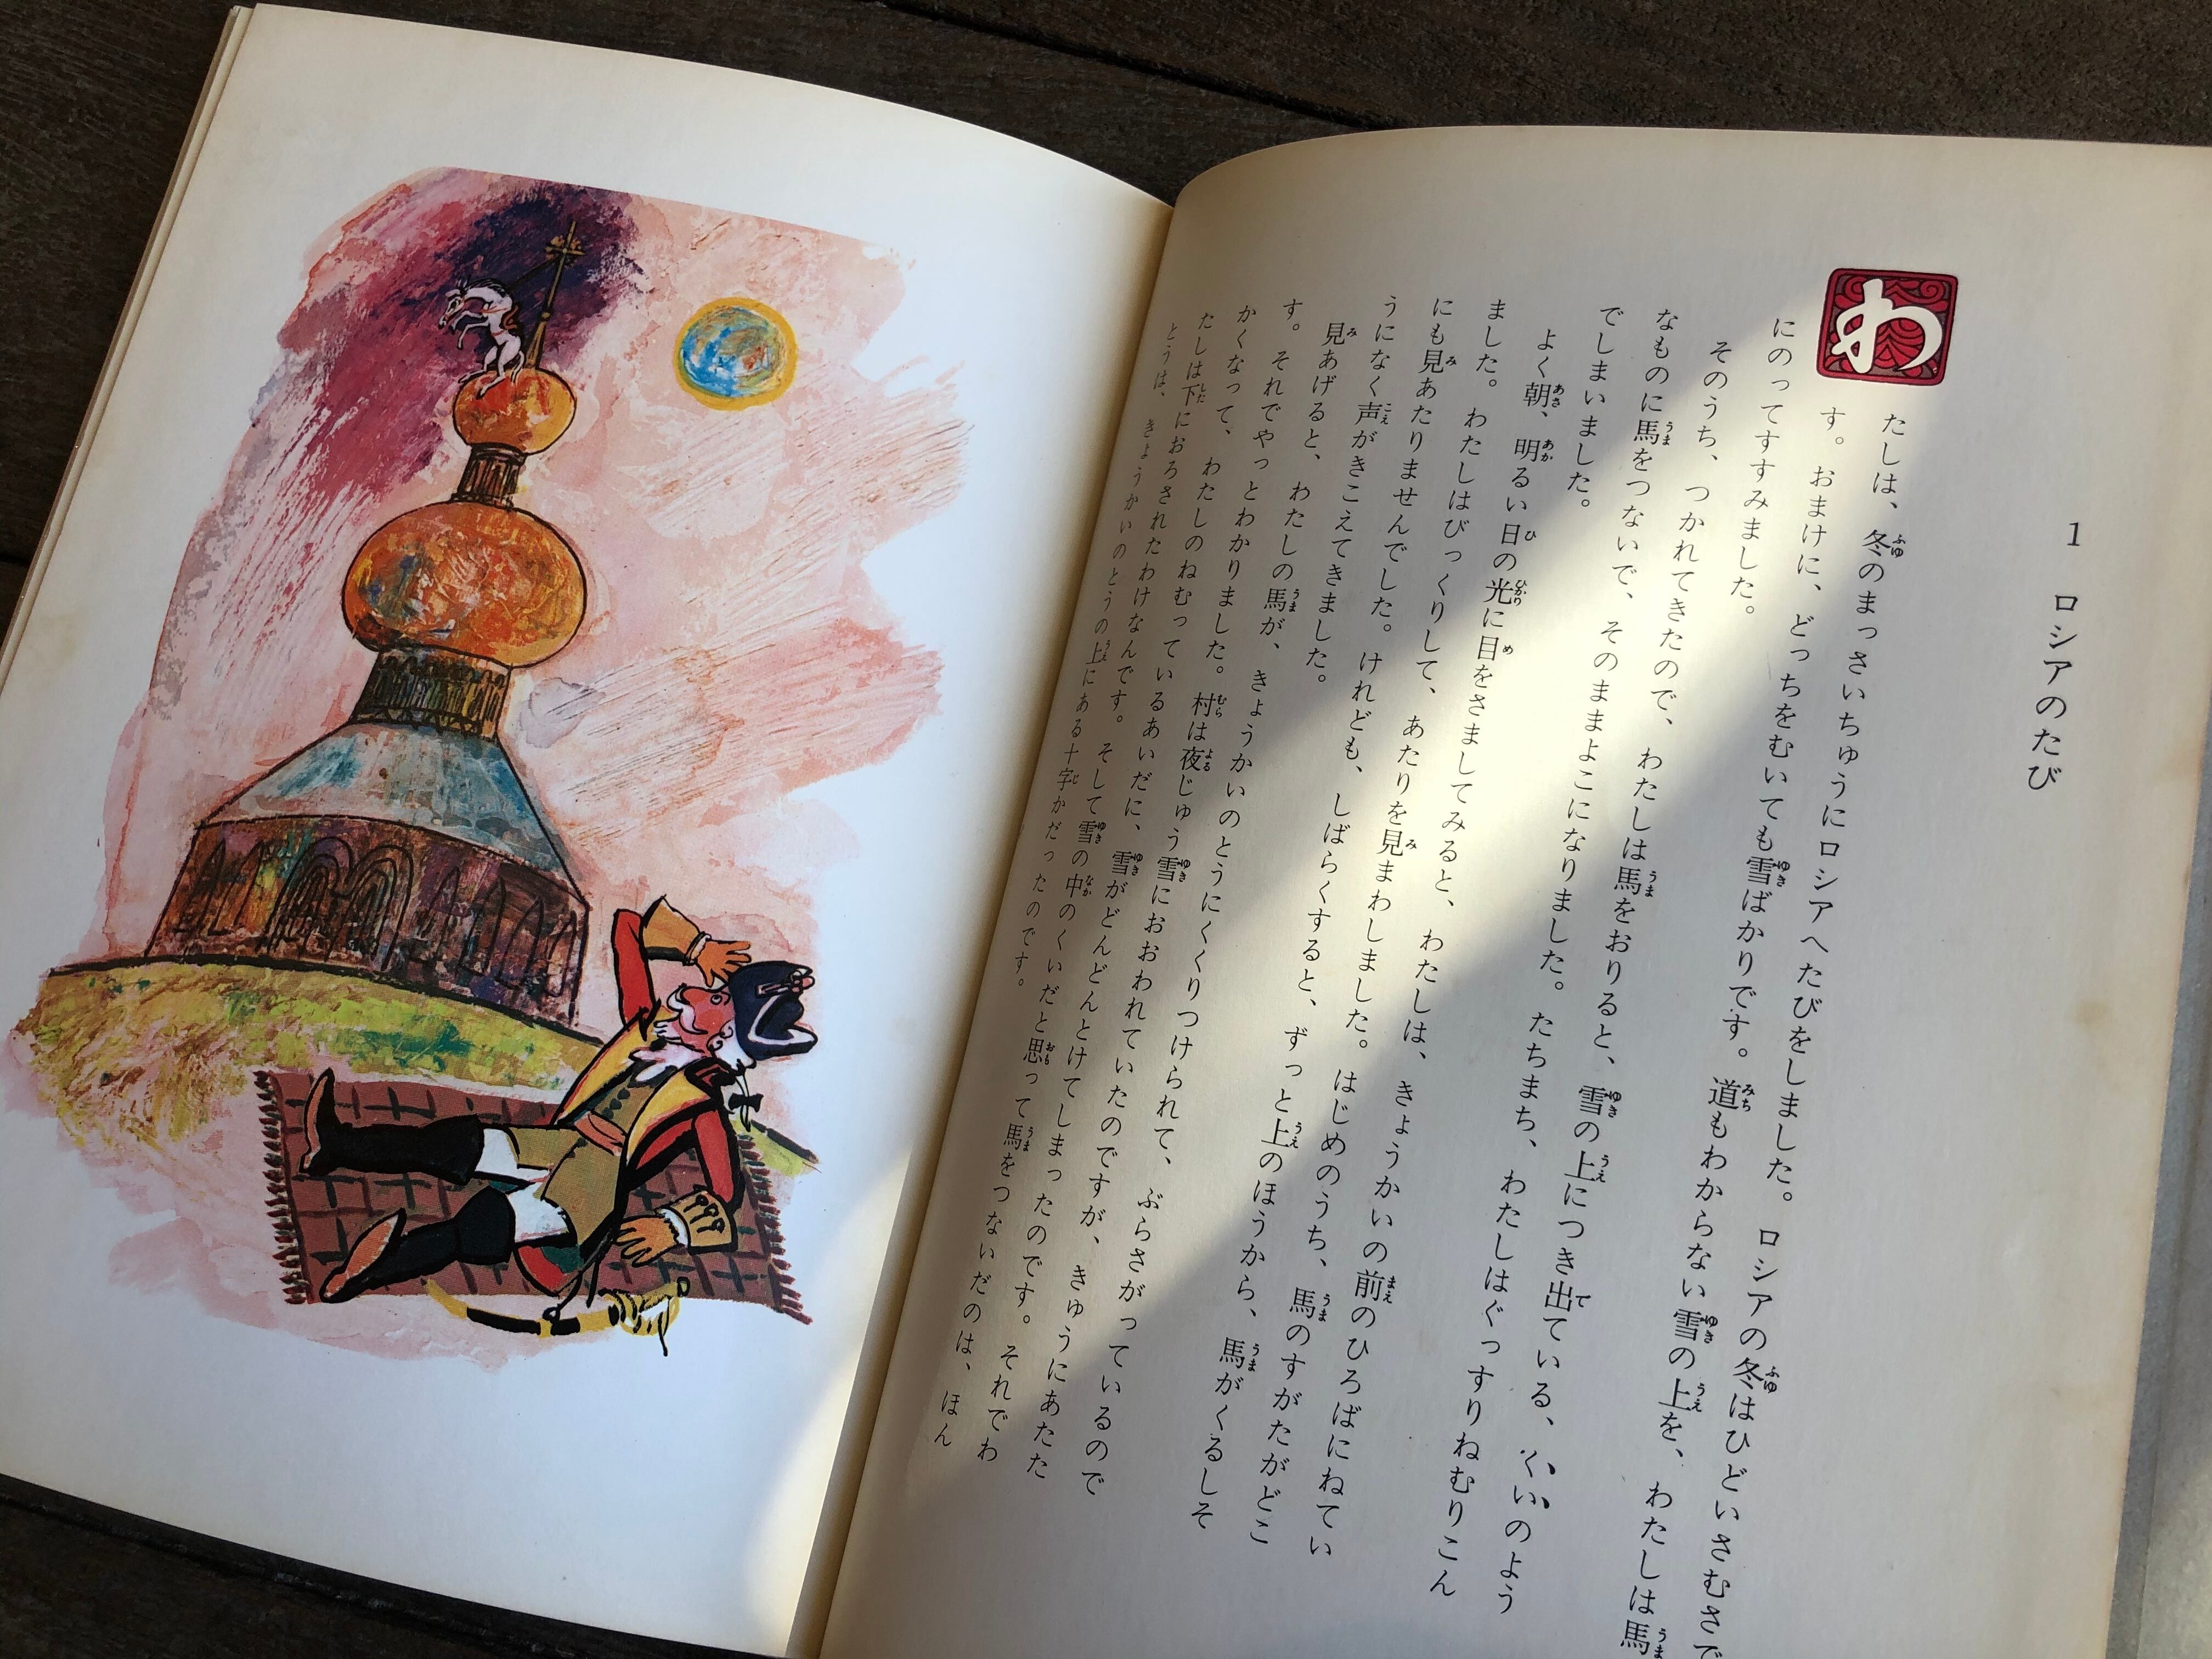 1 ロシアのたび
わたしは、冬のまっさいちゅうにロシアへたびをしました。ロシアの冬はひどいさむさで
す。おまけに、どっちをむいても雪ばかりです。道もわからない雪の上を、わたしは馬
にのってすすみました。
そのうち、つかれてきたので、わたしは馬をおりると、雪の上につき出ている、くいのよう
なものに馬をつないで、そのままよこになりました。たちまち、わたしはぐっすりねむりこん
でしまいました。
よく朝、明るい日の光に目をさましてみると、わたしは、きょうかいの前のひろばにねてい
ました。わたしはびっくりして、あたりを見まわしました。はじめのうち、馬のすがたがどこ
にも見あたりませんでした。けれども、しばらくすると、ずっと上のほうから、馬がくるしそ
うになく声がきこえてきました。
見あげると、わたしの馬が、きょうかいのとうにくくりつけられて、ぶらさがっているので
す。それでやっとわかりました。村は夜じゅう雪におおわれていたのですが、きゅうにあたた
かくなって、わたしのねむっているあいだに、雪がどんどんとけてしまったのです。それでわ
たしは下におろされたわけなんです。そして雪の中のくいだと思って馬をつないだのは、ほん
とうは、きょうかいのとうの上にある十字かだったのです。